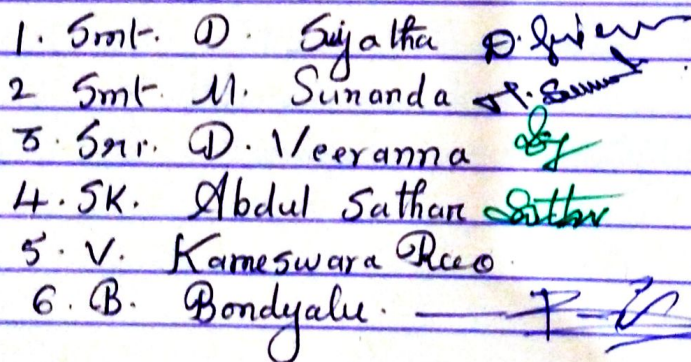 1. Smt. D. Sujatha
2 Smt. M. Sunanda
3. Sri. D. Veeranna
4. SK. Abdul Sathar Sattar
5. V. Kameswara Rao
6. B. Bondyalu.